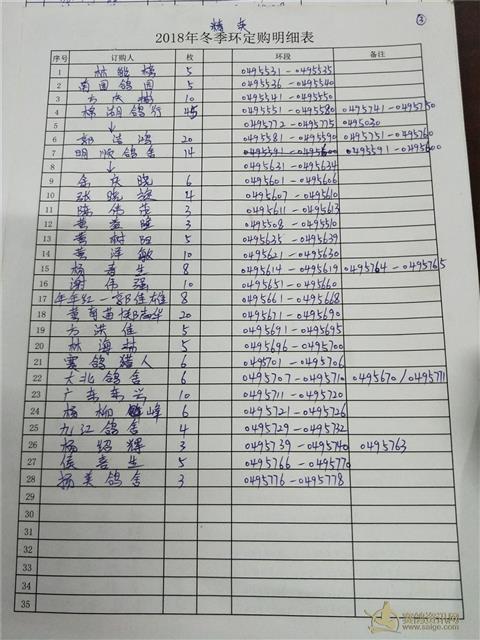 ③
2018年冬季环定购明细表
序号 订购人 枚 环段 备注
1 5 0495531-0495535
2 南国鸽园 5 0495536-0495540
3 10 0495541-0495550
4 45 0495551-0495580 0495741-0495750
5 ↓ 0495772-0495775 0495030
6 郭浩鸿 20 0495581-0495590 0495751-0495760
7 明顺鸽舍 14 0495591-0495600
8 ↓ 0495631-0495634
9 余庆晓 6 0495601-0495606
10 张晓旋 4 0495607-0495610
11 陈伟茂 3 0495611-0495613
12 3 0495508-0495510
13 黄树阳 5 0495635-0495639
14 黄泽敏 10 0495621-0495630
15 8 0495614-0495619 0495764-0495765
16 谢伟强 10 0495651-0495660
17 年年红-郭佳雄 8 0495661-0495668
18 20 0495671-0495690
19 方洪佳 5 0495691-0495695
20 林海林 5 0495696-0495700
21 赛鸽猎人 6 0495701-0495706
22 大北鸽舍 6 0495707-0495710 0495670/0495771
23 广东东兴 10 0495711-0495720
24 6 0495721-0495726
25 九江鸽舍 4 0495729-0495732
26 杨绍辉 3 0495739-0495740 0495763
27 5 0495766-0495770
28 扬美鸽舍 3 0495776-0495778
29
30
31
32
33
34
35
赛鸽资讯网
www.saige.com